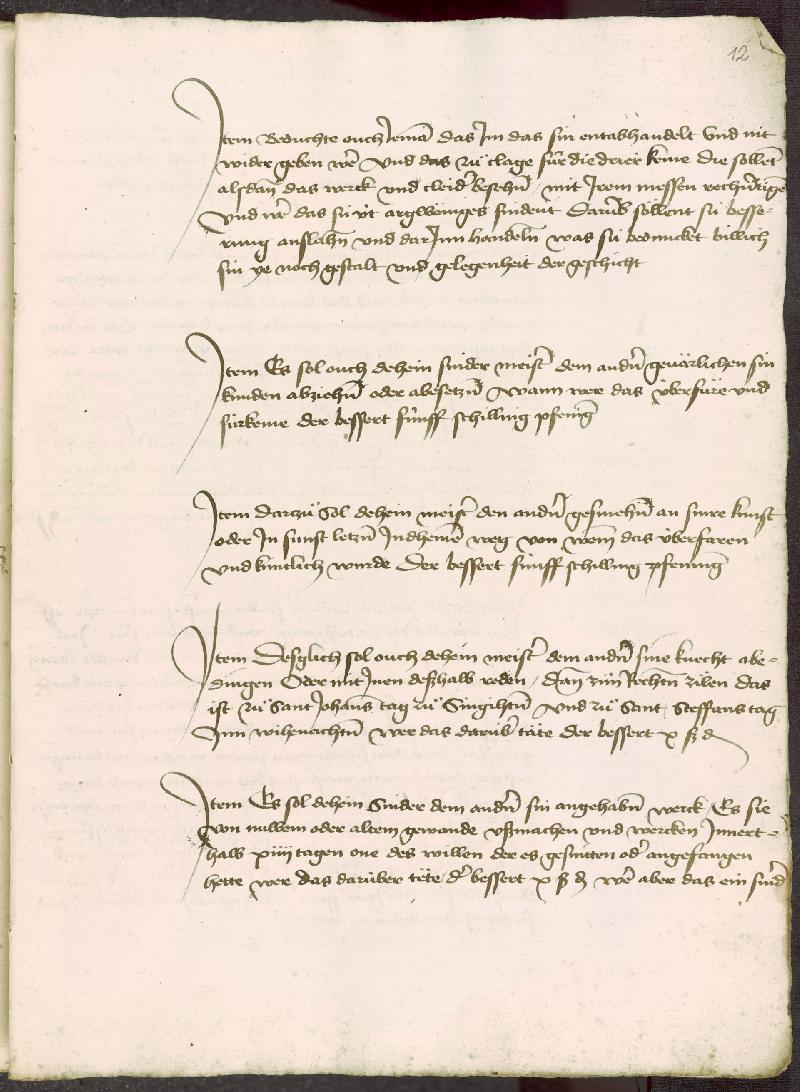 12
Jtem Beduchte ouch Jemā das Jm das sin entabhandelt vnd nit
wider geben wē vnd das zů clage für die drier keme die sollēt
alsdañ das werck vnd cleid̄ besehn̄ mit Jrem messen
vnd wē das sú út argkweniges findent Darūb sollent sú besse-
rung anslahn̄ vnd dar Jnn handeln̄ was sú beduncket billich
sin ye noch gestalt vnd gelegenheit der geschicht
Jtem Es sol ouch dehein snider meist̄ dem andn̄ geuärlichen sin
kunden abziehn̄ oder abesetzn̄ Wann wer das überfüre vnd
fürkeme der bessert fünff schilling pfenīg
Jtem darzů sol dehein meist̄ den andn̄ gesmehn̄ an sinre kunst
oder Jn sunst letzn̄ Jn dheinē weg von wem das überfaren
vnd kuntlich wurde Der bessert fünff schilling pfennīg
Jtem Desglich sol ouch dehein meist̄ dem andn̄ sine knecht abe-
dingen Oder mit Jnen deßhalb reden / Dañ zům Rechtn̄ zilen das
ist zů Sant Johans tag zů Süngihtn̄ vnd zů Sant Steffans tag
Jnn wihenachtn̄ wer das darūb täte der bessert x ß d
Jtem Es sol dehein Snider dem andn̄ sin angehabn̄ werck Es sie
von nuwem oder altem gewande vßmachen vnd wercken Jnnert-
halb xiiij tagen one des willen der es gesnitten od̄ angefangen
hette wer das darüber tete d̄ bessert x ß d wē aber das ein snid̄